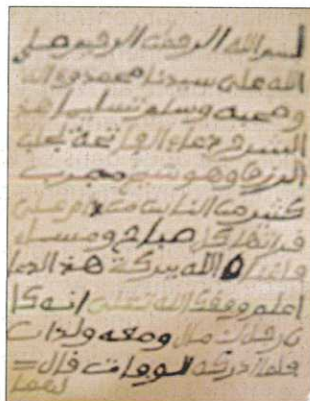 بسم الله الرحمن الرحيم صلى
الله على سيدنا محمد وءاله
وصحبه وسلم تسليما هذ
الشروع دعاء الفاتحة لجلب
الرزق وهو شيء مجرب
كثير من الناس من دام على
قراءتها كل صباح ومساء
الله ببركة هذ الدعا
اعلم وفقك الله تعلى انه كا
ن رجل ذ مال ومعه ولدان
فلما ادركه الوفات قال
لهما